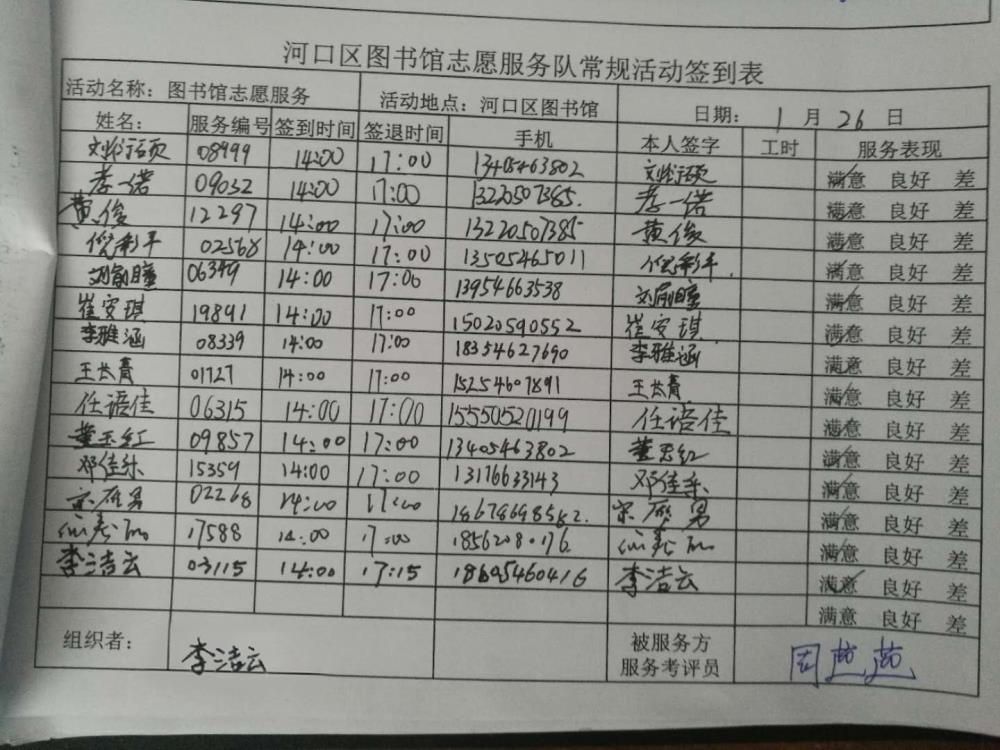 河口区图书馆志愿服务队常规活动签到表
活动名称：图书馆志愿服务 活动地点：河口区图书馆 日期： 1 月 26 日
姓名： 服务编号 签到时间 签退时间 手机 本人签字 工时 服务表现
08999 14:00 17:00 13405463802 满意 良好 差
李一诺 09032 14:00 17:00 13220507385. 李一诺 满意 良好 差
黄俊 12297 14:00 17:00 13220507385 黄俊 满意 良好 差
倪彩平 02568 14:00 17:00 13505465011 倪彩平 满意 良好 差
06349 14:00 17:00 13954663538 满意 良好 差
崔安琪 19891 14:00 17:00 15020590552 崔安琪 满意 良好 差
李雅涵 08339 14:00 17:00 18354627690 李雅涵 满意 良好 差
王长青 01727 14:00 17:00 15254607891 王长青 满意 良好 差
任语佳 06315 14:00 17:00 15550520199 任语佳 满意 良好 差
董玉红 09857 14:00 17:00 13405463802 董玉红 满意 良好 差
邓佳乐 15359 14:00 17:00 13176633143 邓佳乐 满意 良好 差
宋雁男 02268 14:00 17:00 18678698582. 宋雁男 满意 良好 差
17588 14:00 17:00 18562080176 满意 良好 差
李洁云 03115 14:00 17:15 18605460416 李洁云 满意 良好 差
满意 良好 差
组织者： 李洁云 被服务方
服务考评员